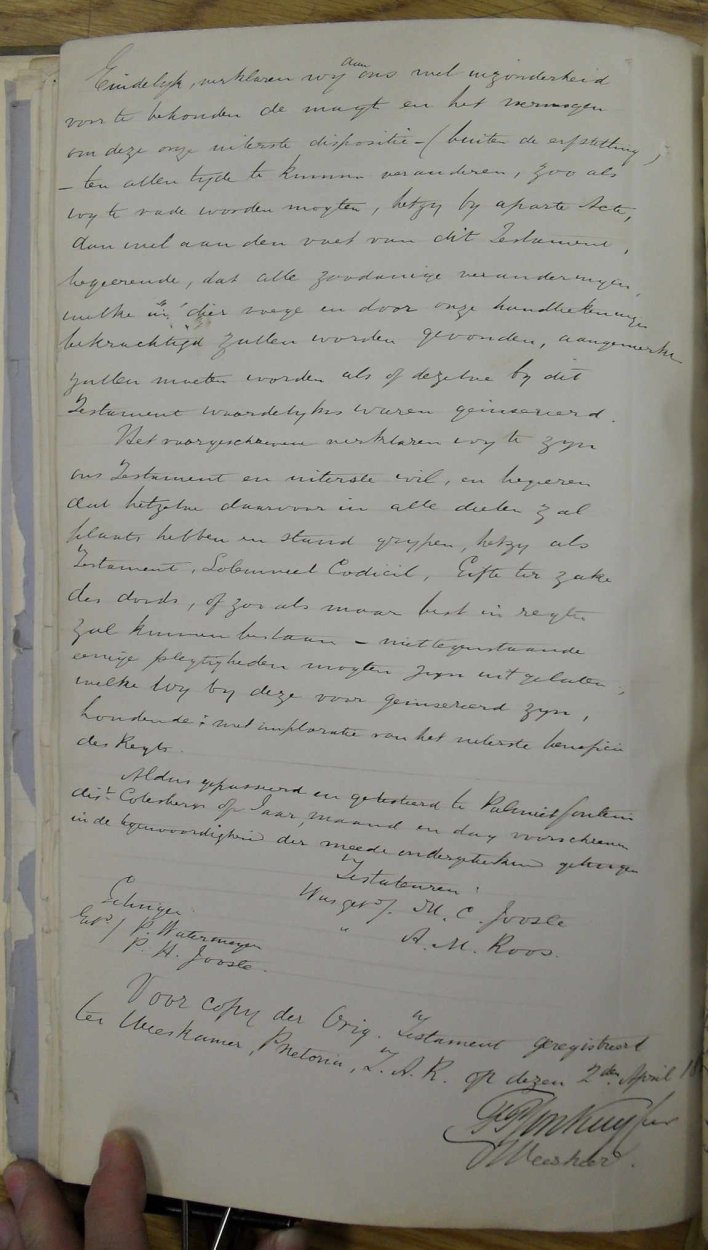 Eindelyk, verklaren wy aan ons wel inzonderheid
voor te behouden de magt en het vermogen
om deze onze uiterste dispositie – (buiten de erfstelling)
– ten allen tyde te kunnen veranderen, zoo als
wy te rade worden mogten, hetzy by aparte Acte,
dan wel aan den voet van dit Testament,
begeerende, dat alle zoodanige veranderingen,
welke in dier voege en door onze handteekeningen
bekrachtigd zullen worden gevonden, aangemerkt
zullen moeten worden als of dezelve by dit
Testament woordelyks waren geinsereerd.
Het voorgeschreven verklaren wy te zyn
ons Testament en uiterste wil, en begeren
dat hetzelve daarvoor in alle deelen zal
plaats hebben en stand grypen, hetzy als
Testament, Solemneel Codicil, Gifte ter zake
des doods, of zoo als maar best in regte
zal kunnen bestaan – niettegenstaande
eenige plegtigheden mogten zyn uitgelaten;
welke wy by deze voor geinsereerd zyn,
houdende; met imploratie van het uiterste beneficie
des Regts.
Aldus gepasseerd en getesteerd te Palmietfontein
dist. Colesberg op Jaar maand en dag voorschreven
in de tegenwoordigheid der meede ondergeteekend getuigen
Testateuren:
Was get. M. C. Jooste
" A. M. Roos.
Getuigen
Get. P. Watermeyer
P. H. Jooste.
Voor copy der Orig. Testament geregistreerd
ter Weeskamer, Pretoria, Z. A. R. op dezen 2den April 18
Weesheer.